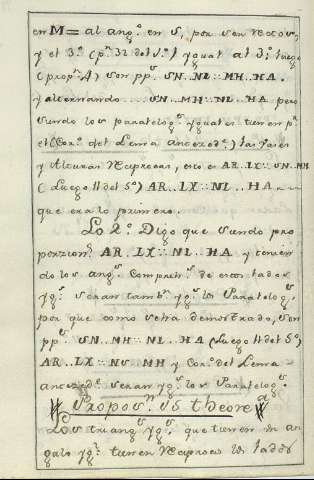 en M= al ang.º en S, por ser rectos,
y el 3.º (p.r 32 del 1.º) ygual al 3.º luego
(prop.n 4) son pp.s SN..NL :: MH..HA.
y alternando .... SN..MH :: NL..HA pero
siendo los paralelog.s yguales tienen p.r
el (Cor.º del Lema anced.e) las bases
y Alturas Reciprocas, esto es AR..LX :: SN..MH
(Luego 11 del 5.º) AR..LX :: NL..HA
que era lo primero.
Lo 2.º Digo que siendo pro
porzion.s AR..LX :: NL..HA y tenien
do los ang.s Compreh.s de esos lados
yg.s seran tamb.n yg.s los Paralelog.s
por que como se ha demostrado, son
pp.s SN..MH :: NL..HA (Luego 11 del 5.º)
AR..LX :: NS..MH y Cor.º del Lema
anced.e seran yg.s los Paralelog.s
Propos.n 15 theore.a
Los triang.s yg.s que tienen un an
gulo yg.l tienen Reciprocos los lados